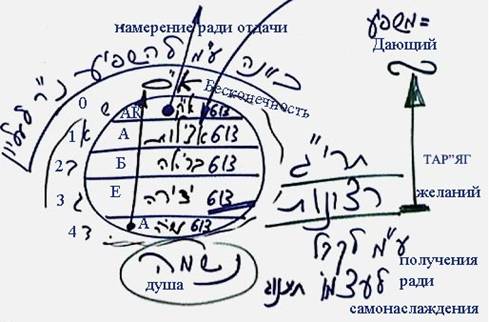 намерение ради отдачи
משפיע=
Дающий
כוונה ע"מ להשפיע נ"ר לעליון
א"ס
Бесконечность
0 ש АК א"ק 613
1 א А אצילות 613
2 ב Б בריאה 613
3 ג Е יצירה 613
4 ד А עשיה 613
תרי"ג
ТАР"ЯГ
רצונות
желаний
ע"מ לקבל
получения
נשמה
душа
לעצמו תענוג
ради
самонаслаждения